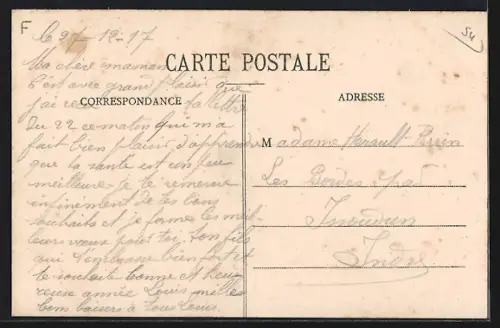 F
54
le 27-12-17
CARTE POSTALE
CORRESPONDANCE
ADRESSE
Ma chère maman
C'est avec grand plaisir que
j'ai reçu ta lettre
Du 22 ce matin qui m'a
fait bien plaisir d'apprendre
que la santé est un peu
meilleure je te remercie
infiniment de tes bons
souhaits et je forme les meil
leurs vœux pour toi, ton fils
qui t'embrasse bien fort et
te souhaite bonne et heu
reuse année Louis milles
bons baisers à tous Louis
Madame Herault
Les Bordes par
Issoudun
Indre